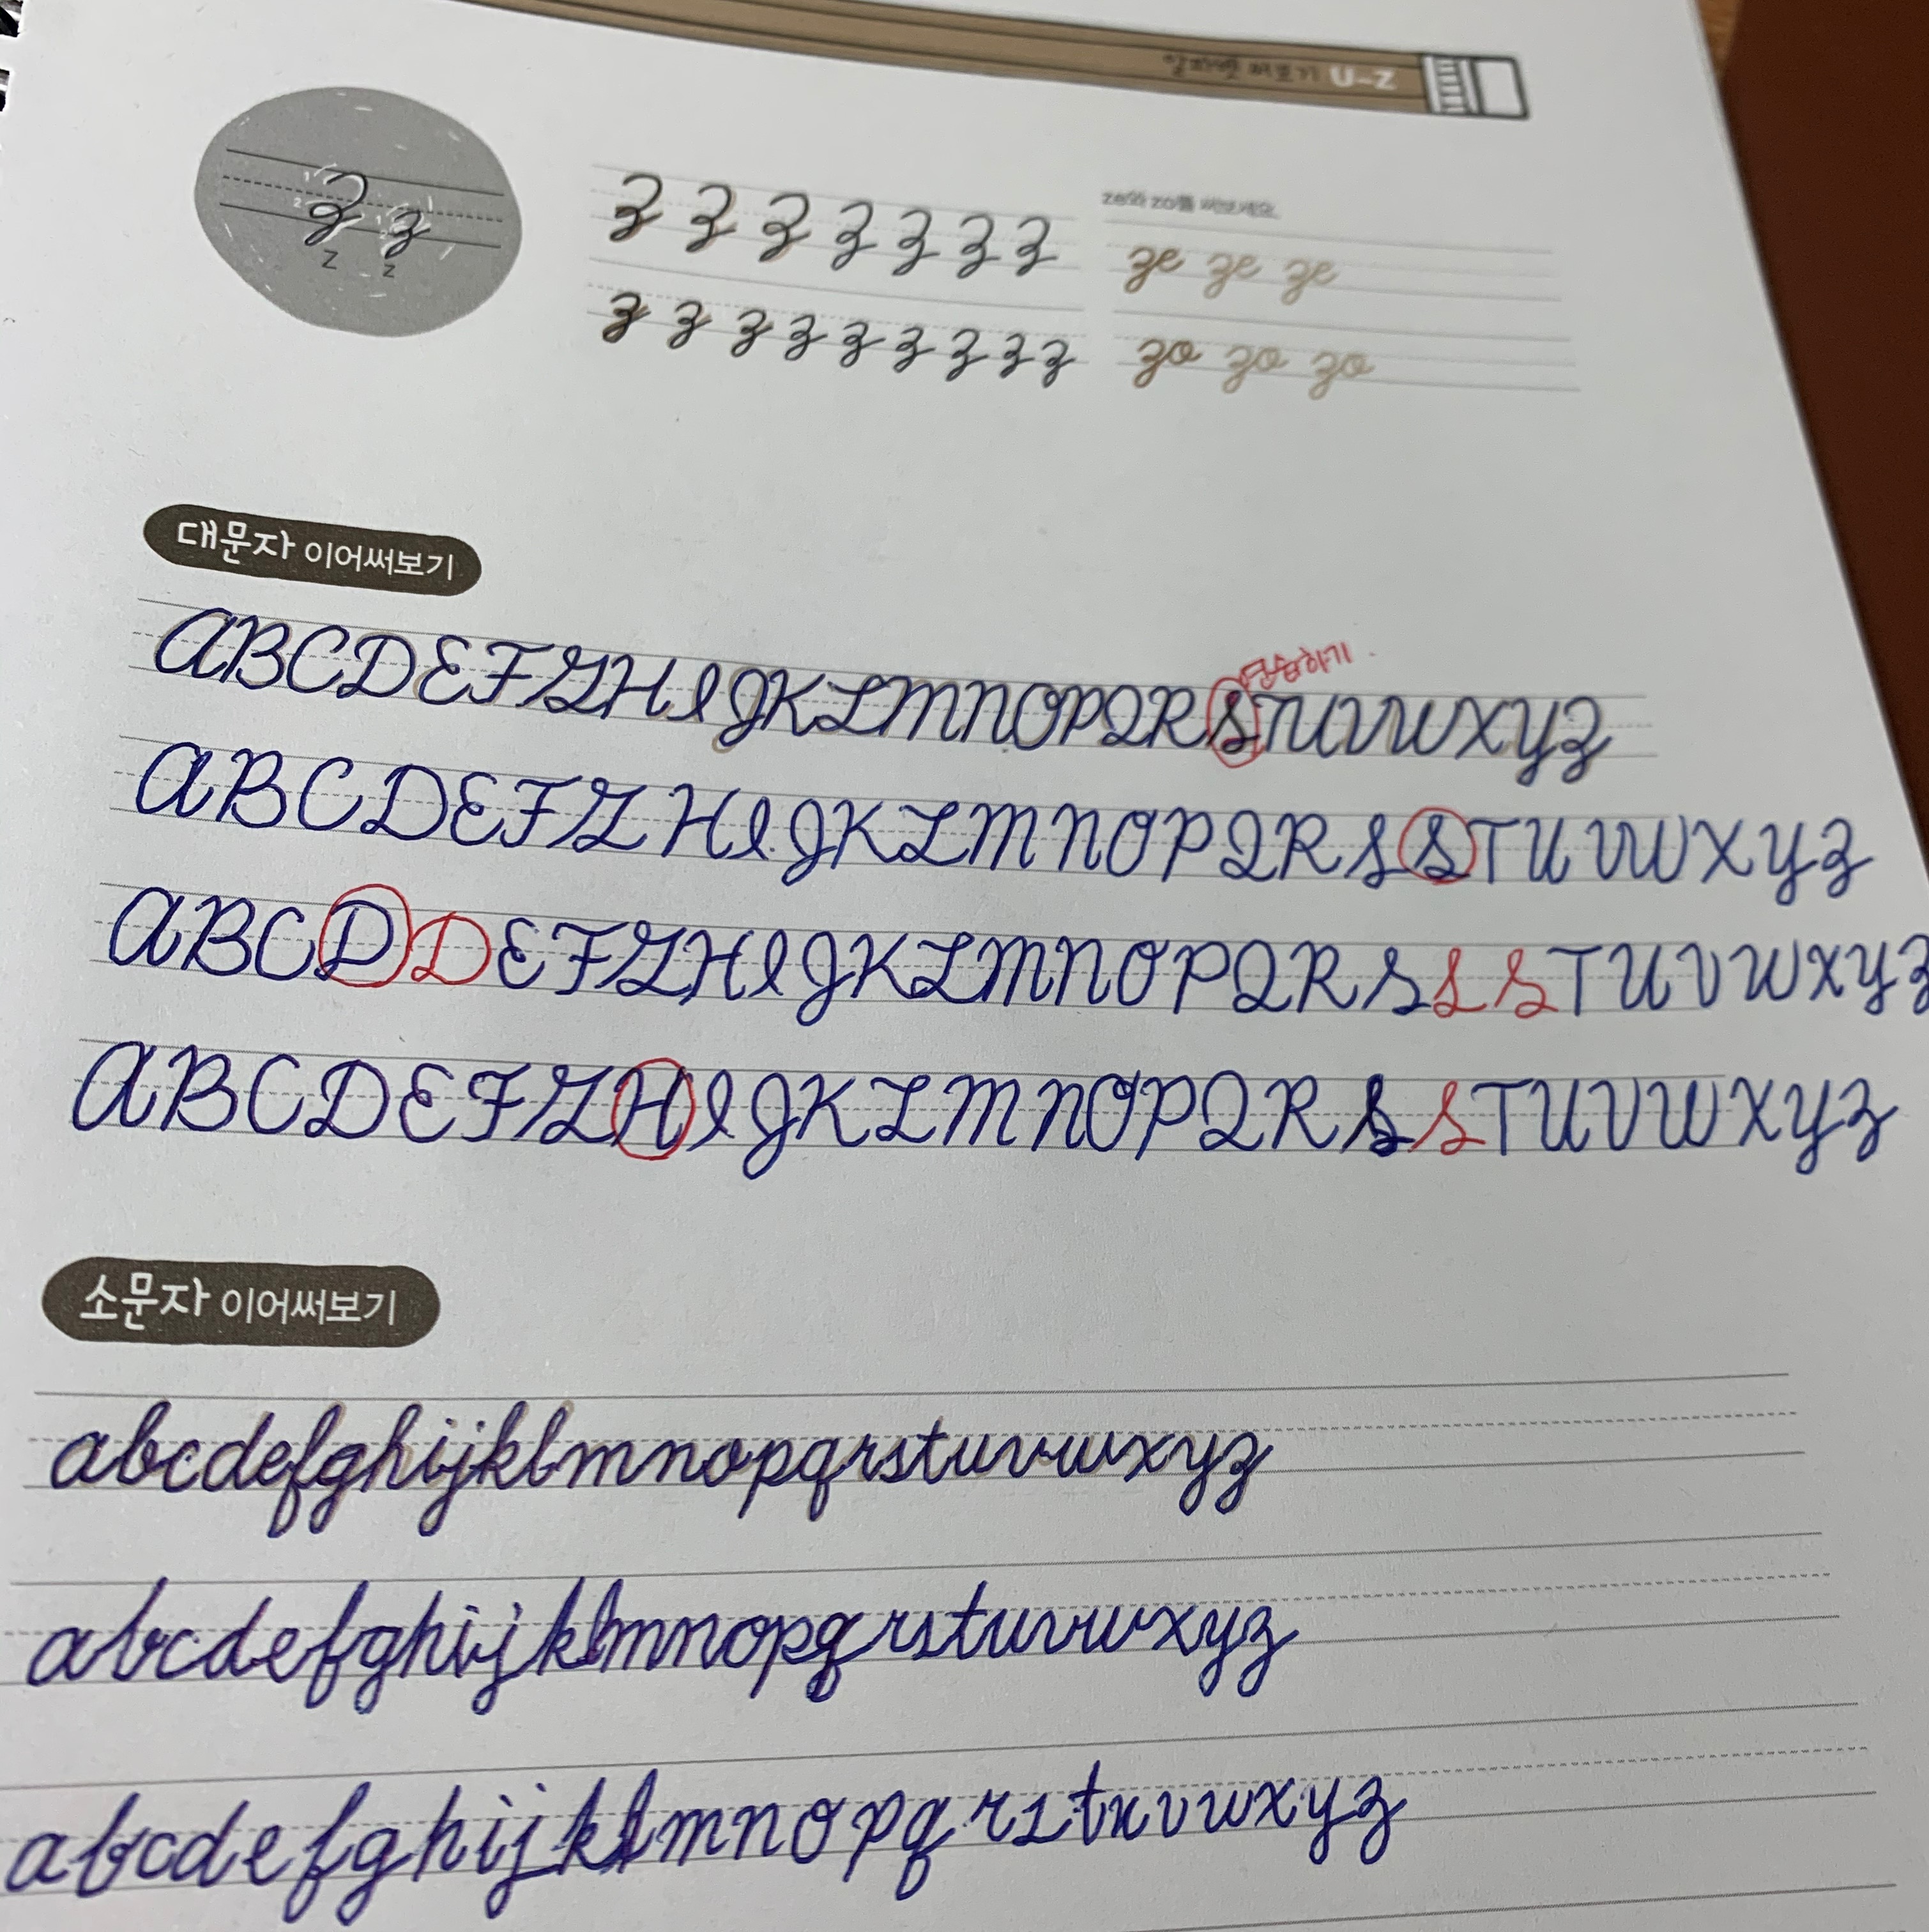 알파벳 써보기 U-Z
Z z
z z
Z Z Z Z Z Z Z
z z z z z z z z z
ze와 zo를 써보세요.
ze ze ze
zo zo zo
대문자 이어써보기
연습하기
ABCDEFGHIJKLMNOPQRSTUVWXYZ
ABCDEFGHIJKLMNOPQRSSTUVWXYZ
ABCDDEFGHIJKLMNOPQRSSSTUVWXYZ
ABCDEFGHIJKLMNOPQRSSTUVWXYZ
소문자 이어써보기
abcdefghijklmnopqrstuvwxyz
abcdefghijklmnopqrstuvwxyz
abcdefghijklmnopqrstuvwxyz